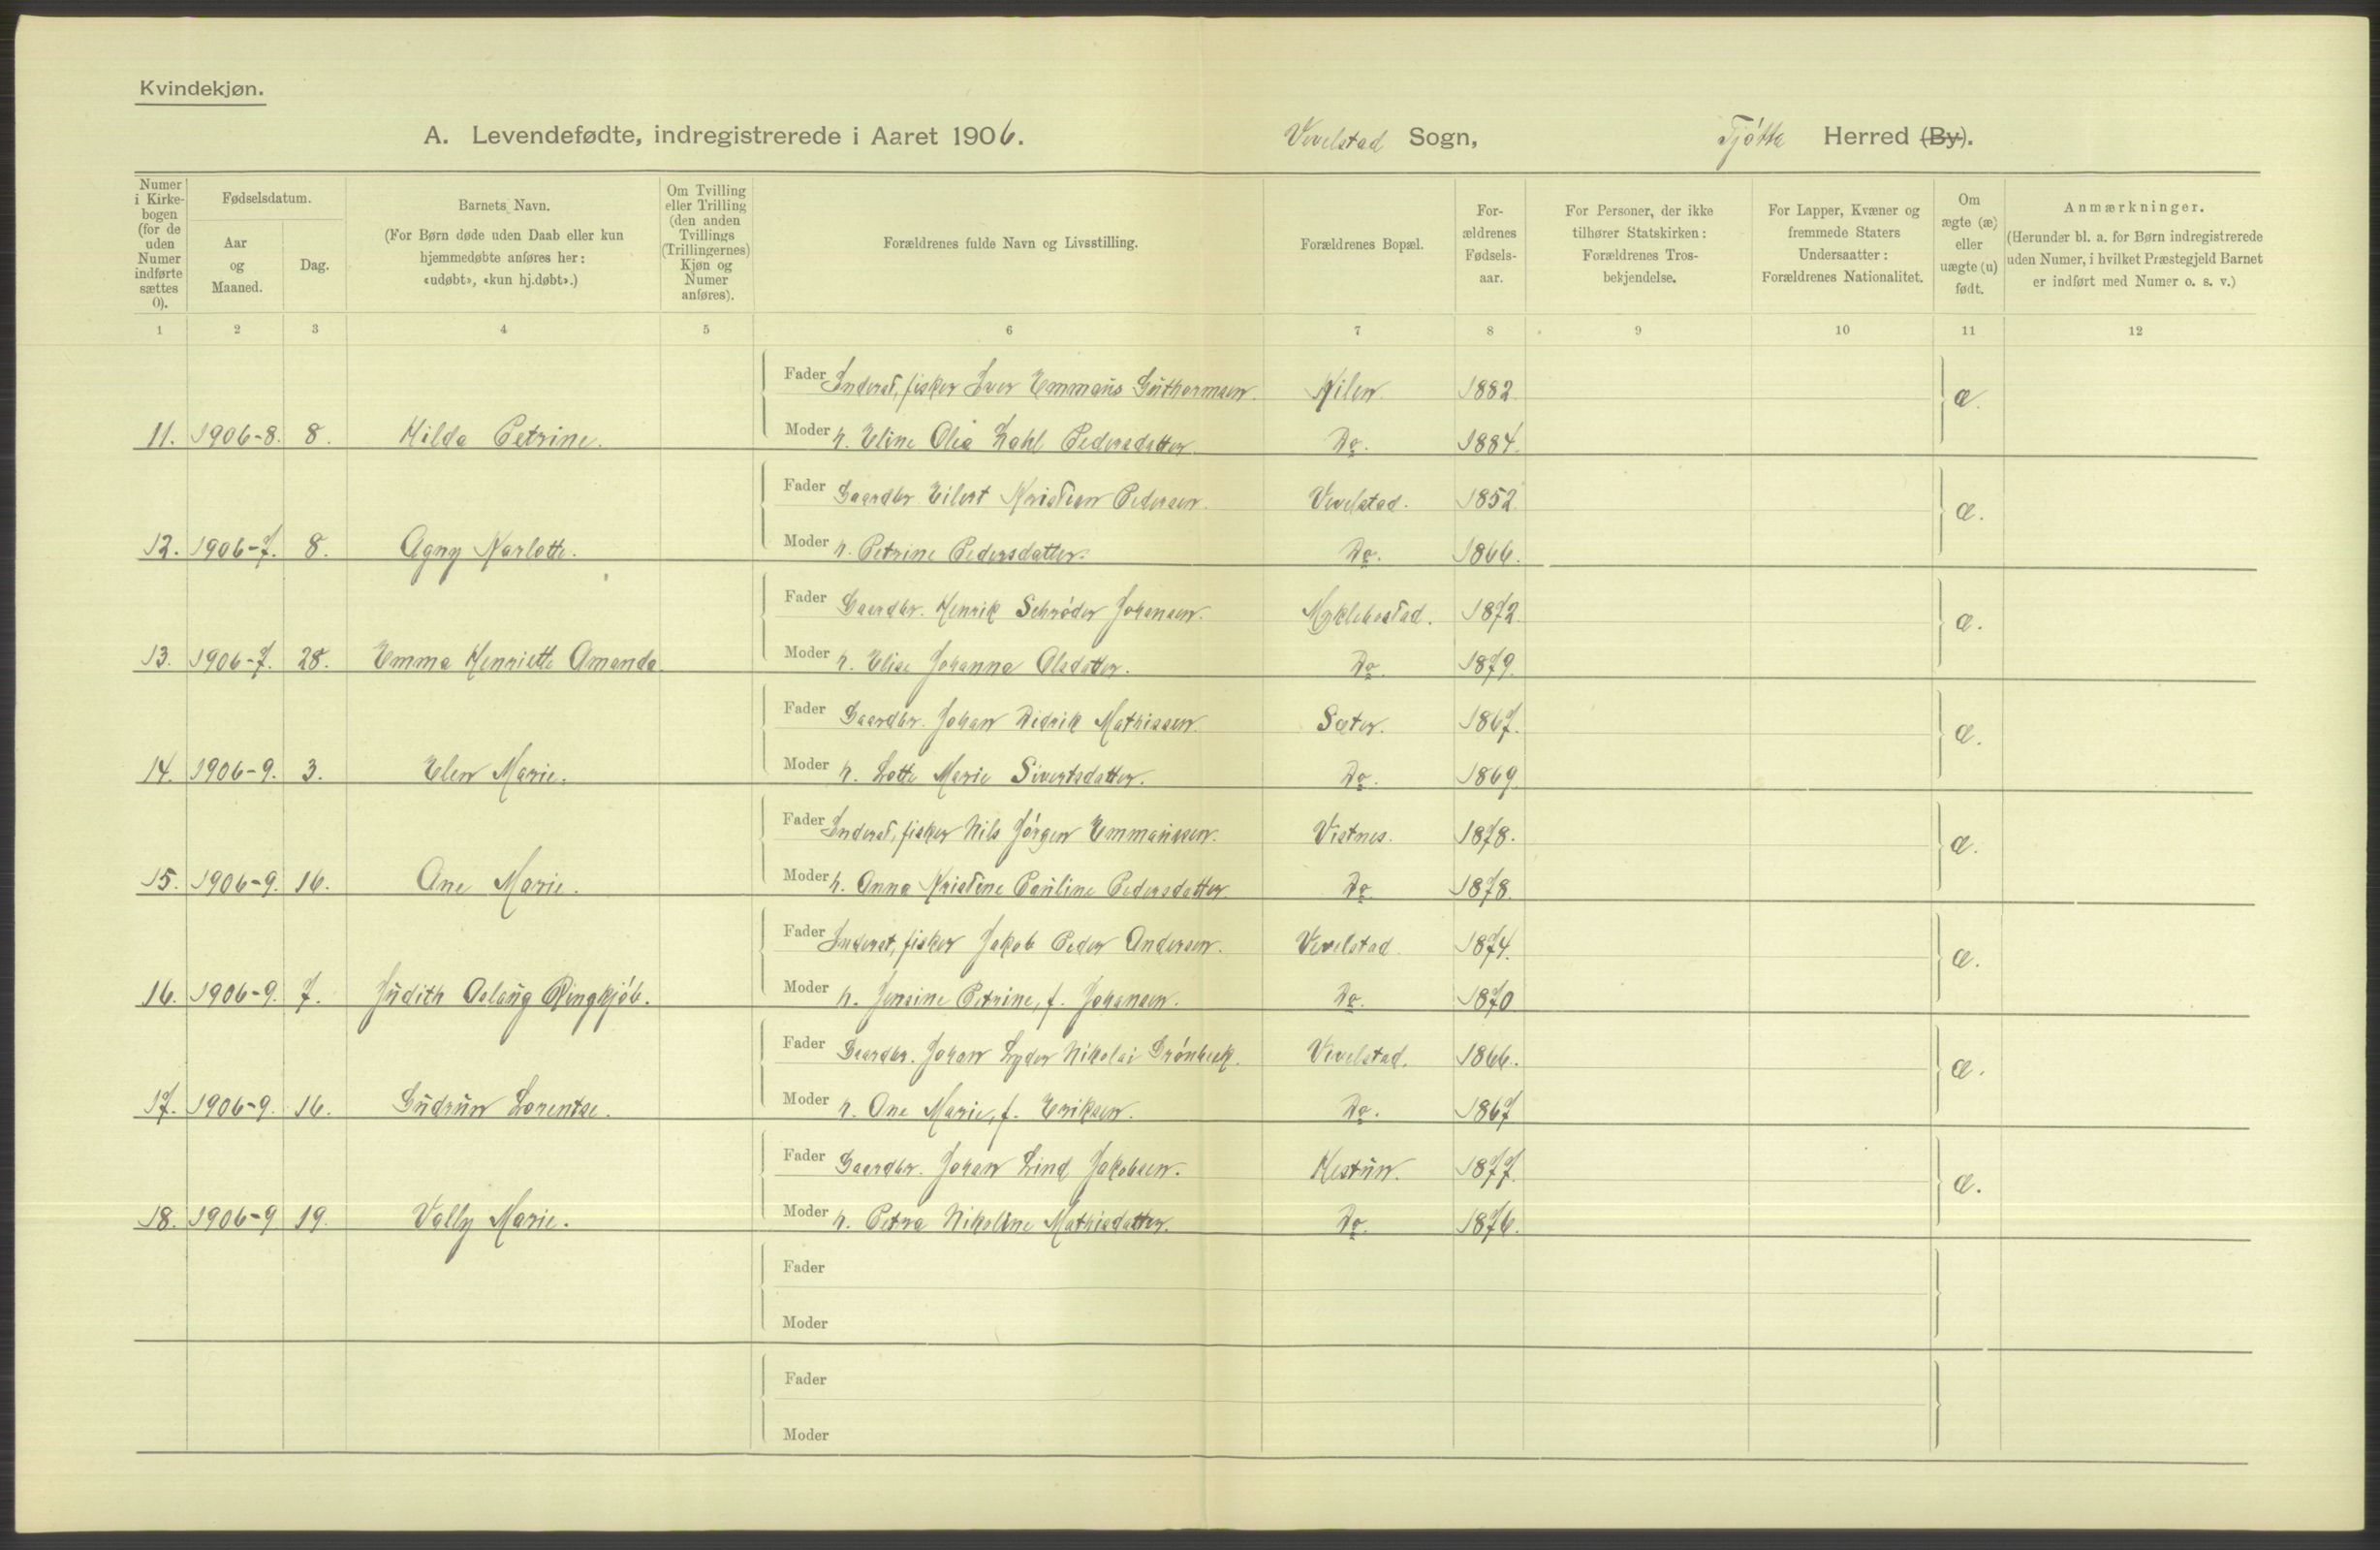 Kvindekjøn.
A. Levendefødte, indregistrerede i Aaret 1906. Vevelstad Sogn, Tjøtta Herred (By).
Numer i Kirke-bogen (for de uden Numer indførte sættes 0).
Fødselsdatum.
Aar og Maaned.
Dag.
Barnets Navn.
(For Børn døde uden Daab eller kun hjemmedøbte anføres her: «udøbt», «kun hj.døbt».)
Om Tvilling eller Trilling (den anden Tvillings (Trillingernes) Kjøn og Numer anføres).
Forældrenes fulde Navn og Livsstilling.
Forældrenes Bopæl.
For-ældrenes Fødsels-aar.
For Personer, der ikke tilhører Statskirken: Forældrenes Tros-bekjendelse.
For Lapper, Kvæner og fremmede Staters Undersaatter: Forældrenes Nationalitet.
Om ægte (æ) eller uægte (u) født.
Anmærkninger.
(Herunder bl. a. for Børn indregistrerede uden Numer, i hvilket Præstegjeld Barnet er indført med Numer o. s. v.)
1 2 3 4 5 6 7 8 9 10 11 12
Fader Inderst, fisker Iver Emmaus Guthormsen. Kilen. 1882. æ.
11. 1906-8. 8. Hilda Petrine. Moder h. Eline Olea Zahl Pedersdatter Do. 1884.
Fader Gaardbr. Eilert Kristian Pedersen. Vevelstad. 1852 æ.
12. 1906-7. 8. Agny Karlotte. Moder h. Petrine Pedersdatter. Do. 1866.
Fader Gaardbr. Henrik Schrøder Johansen. Myklebostad. 1872. æ.
13. 1906-7. 28. Emma Henriette Amanda. Moder h. Elise Johanna Olsdatter. Do. 1879.
Fader Gaardbr. Johan Didrik Mathissen. Sæter. 1867. æ.
14. 1906-9. 3. Elen Marie. Moder h. Lotte Marie Sivertsdatter. Do. 1869.
Fader Inderst, fisker Nils Jørgen Emmaussen. Vistnes. 1878. æ.
15. 1906-9. 16. Ane Marie. Moder h. Anna Kristine Pauline Pedersdatter. Do. 1878.
Fader Inderst, fisker Jakob Peder Andersen. Vevelstad. 1874. æ.
16. 1906-9. 7. Judith Aslaug Ringkjøb. Moder h. Jensine Petrine, f. Johansen. Do. 1870
Fader Gaardbr. Johan Lyder Nikolai Grønbeck. Vevelstad. 1866. æ.
17. 1906-9. 16. Gudrun Lorentse. Moder h. Ane Marie, f. Eriksen. Do. 1867
Fader Gaardbr. Johan Lind Jakobsen. Hestun. 1877. æ.
18. 1906-9 19. Vally Marie. Moder h. Petra Nikoline Mathisdatter. Do. 1876.
Fader
Moder
Fader
Moder